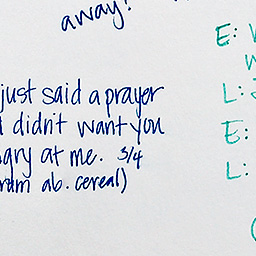 away?
just said a prayer
didn't want you
at me. 3/4
ab. cereal)
E:
L:
E:
L: